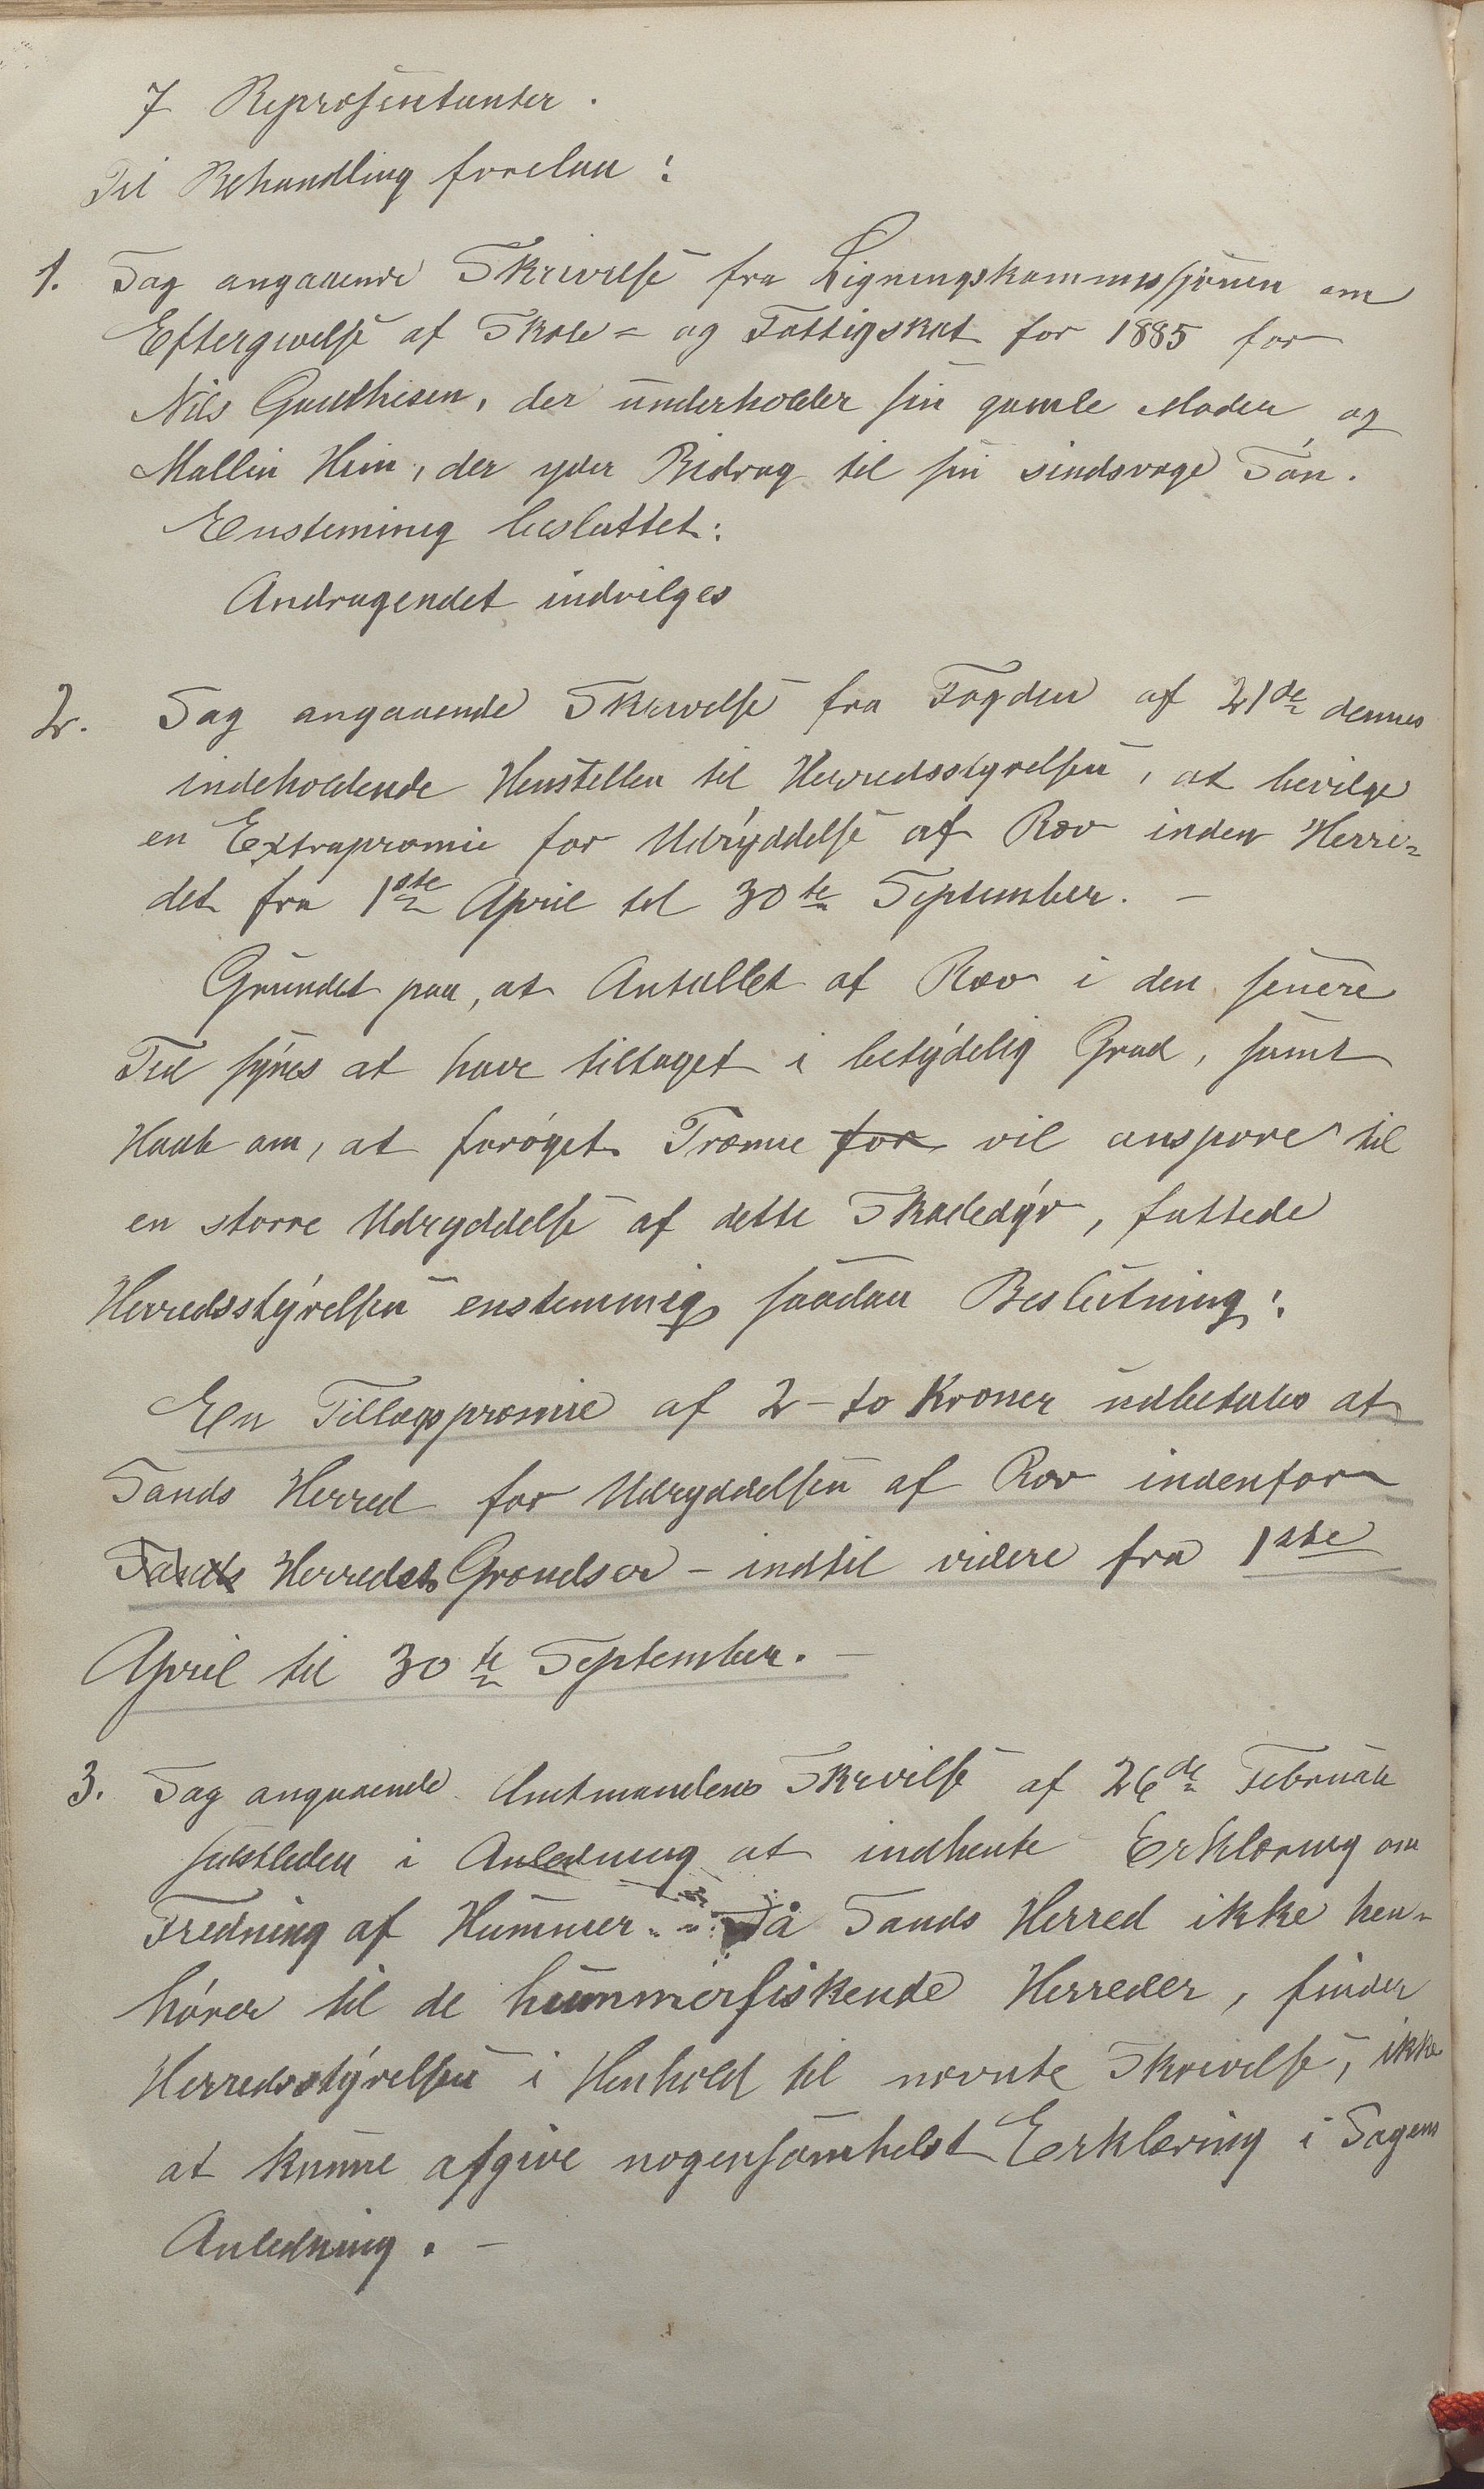 7 Repræsentanter.
Til Behandling forelaa:
1. Sag angaaende Skrivelse fra Ligningskommissjonen om
Eftergivelse af Skole- og Fattigskat for 1885 for
Nils Gauthesen, der underholder sin gamle Moder og
Mallin Hein, der yder Bidrag til sin sindsvage Søn.
Enstemmig besluttet:
Andragendet indvilges
2. Sag angaaende Skrivelse fra Fogden af 21de dennes
indeholdende Henstellen til Herredsstyrelsen, at bevilge
en Extrapræmie for Udryddelse af Ræv inden Herre-
det fra 1ste April til 30te September. -
Grundet paa, at Antallet af Ræv i den senere
Tid synes at have tiltaget i betydelig Grad, samt
Haab om, at forøget Præmie for vil anspore til
en større Udryddelse af dette Skadedyr, fattede
Herredsstyrelsen enstemmig saadan Beslutning:
En Tillægspræmie af 2 - to Kroner udbetales at
Sands Herred for Udryddelsen af Ræv indenfor
Sands Herredets Grændser - indtil videre fra 1ste
April til 30te September. -
3. Sag angaaende Amtmandens Skrivelse af 26de Februar
sidstleden i Anledning at indhente Erklæring om
Fredning af Hummer. - Då Sands Herred ikke hen-
hører til de hummerfiskende Herreder, finder
Herredsstyrelsen i Henhold til nævnte Skrivelse, ikke
at kunne afgive nogensomhelst Erklæring i Sagens
Anledning. -